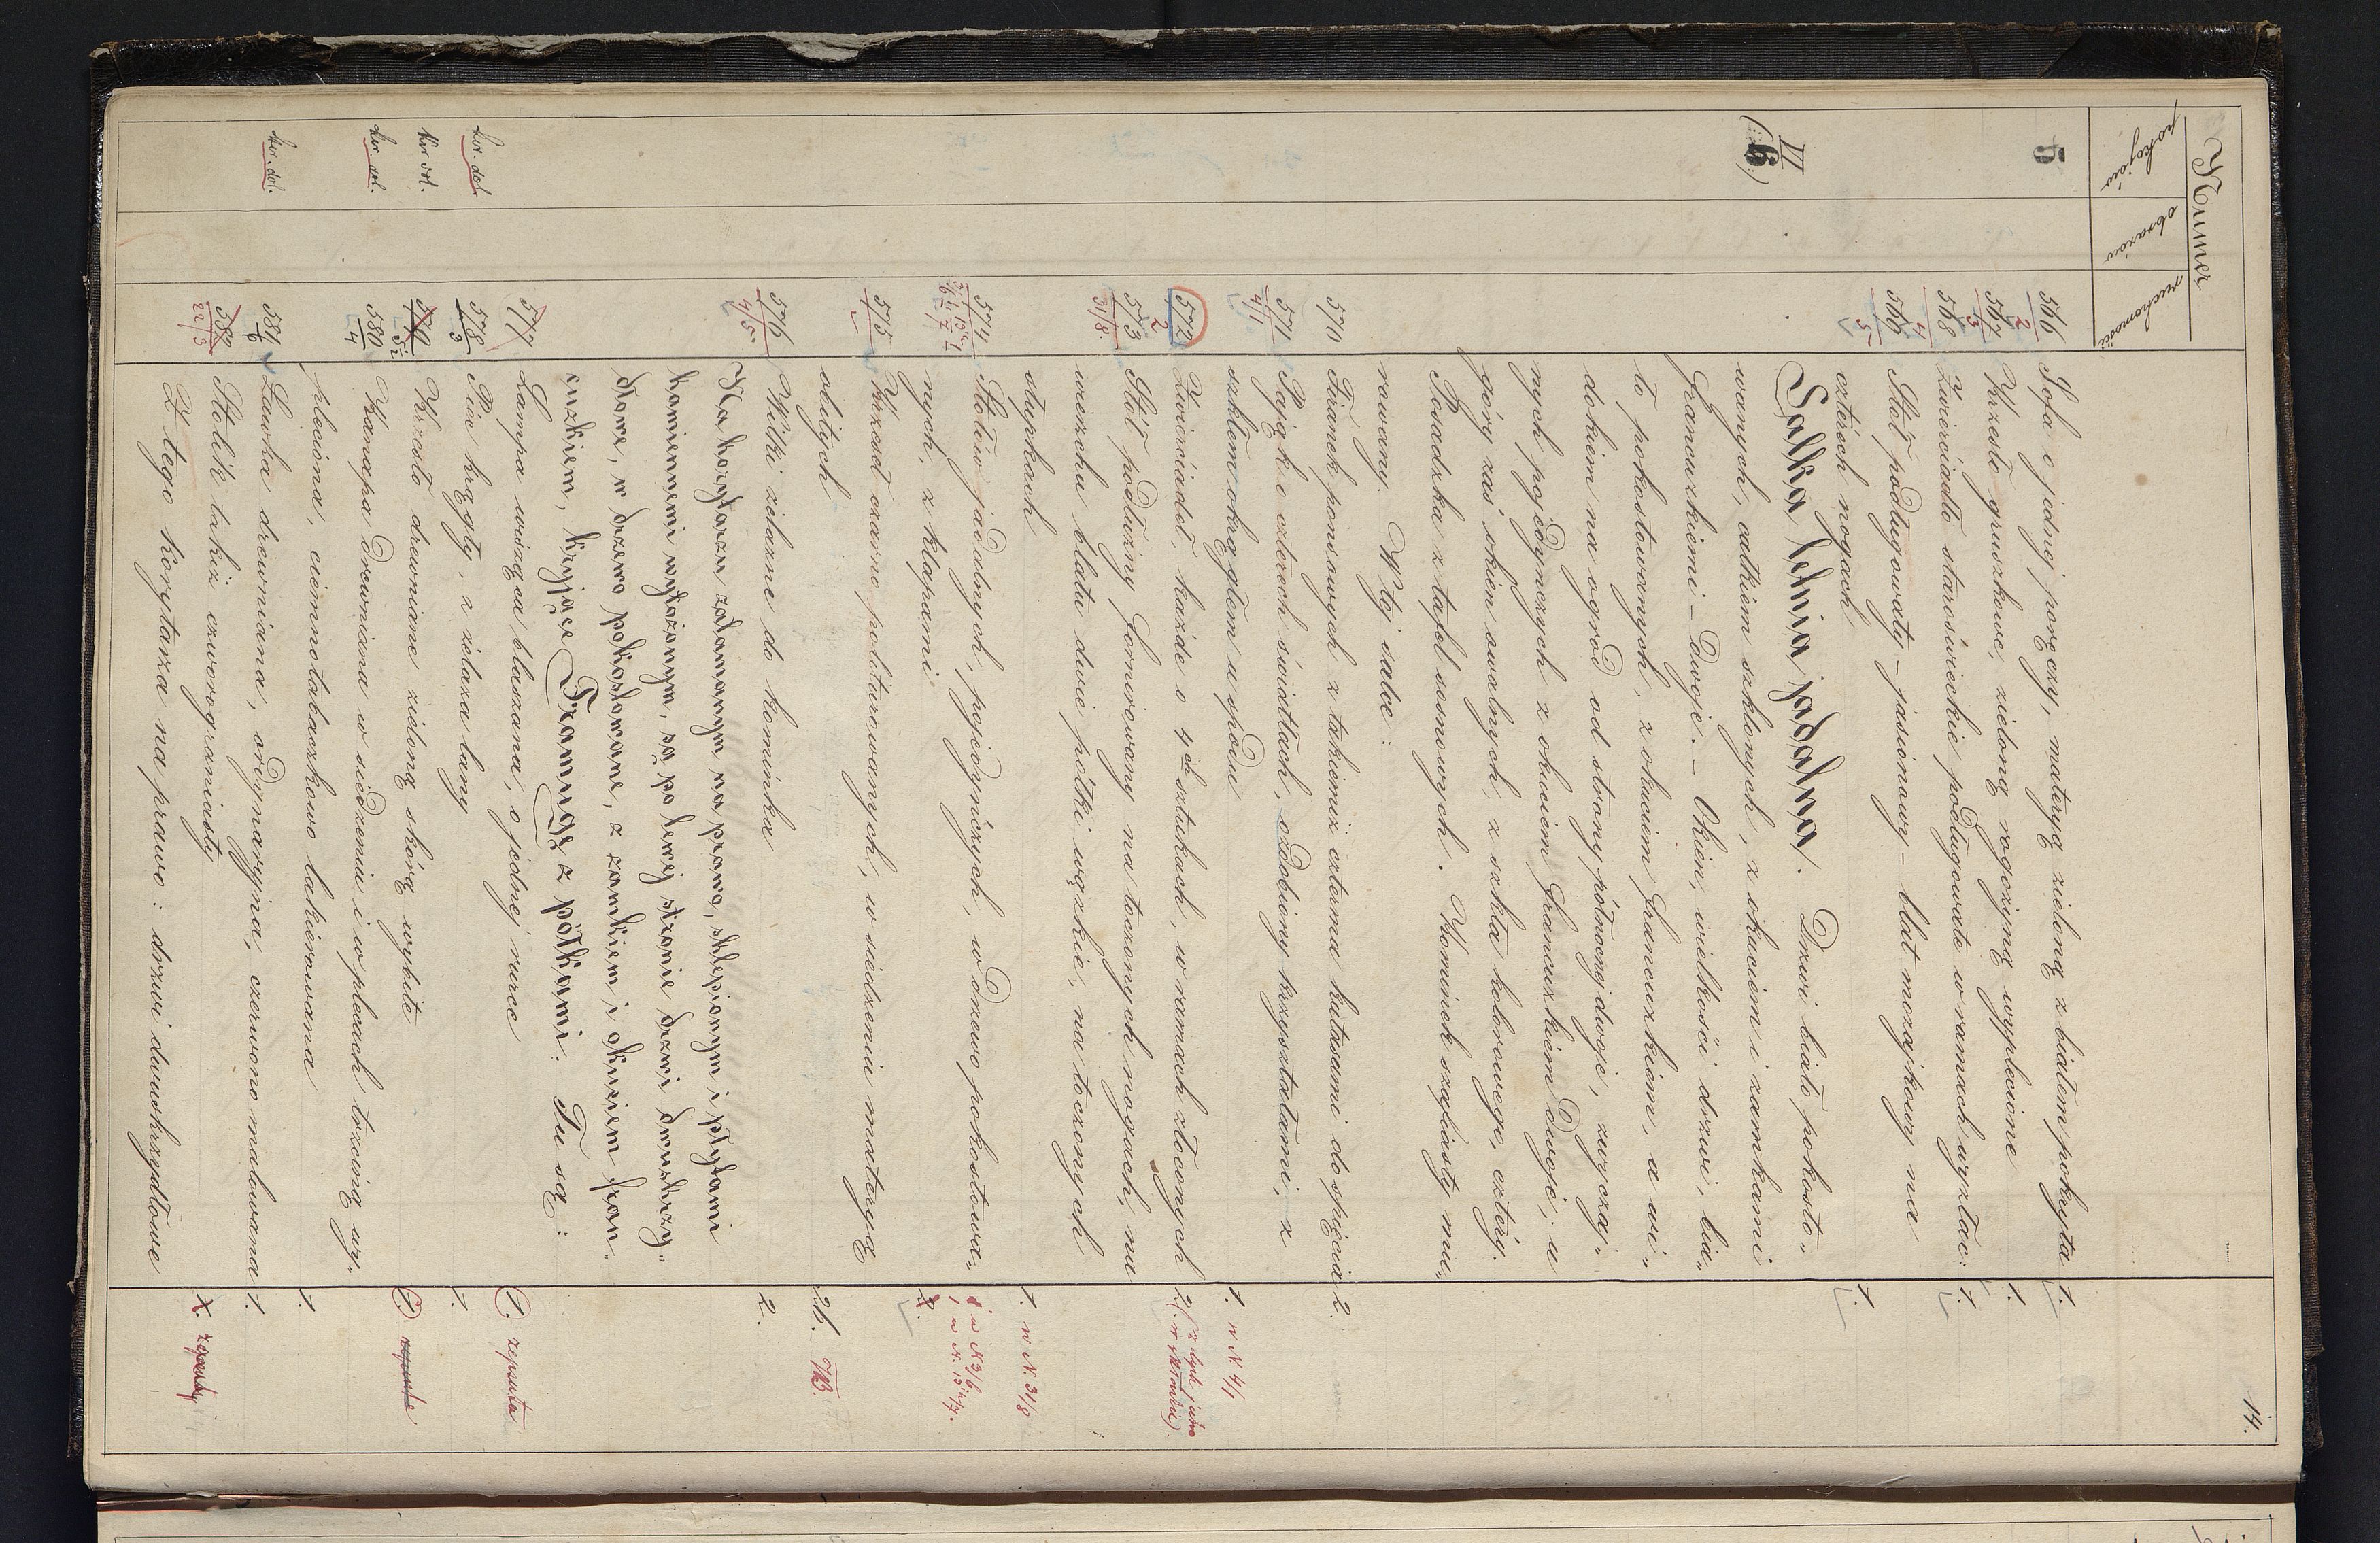 14.
Numer
pokojów obrazów ruchomości
5 566/2 Sofa o jednej poręczy, materyą zieloną z białem pokryta 1.
567/3 Krzesło gruszkowe, zieloną rogożyną wyplecione 1.
568/4 Zwierciadło staroświeckie podługowate w ramach wyzłac: 1.
569/5 Stół podługowaty – jasionowy – blat mozajkowy na
cztérech nogach 1.
VI (:6:) Salka letnia jadalna. Drzwi biało pokosto-
wanych, całkiem szklonych, z okuciem i zamkami
francuzkiemi – dwoje. – Okien, wielkości drzwi, bia-
ło pokostowanych, z okuciem francuzkiem, a wi-
dokiem na ogród od strony północnej dwoje, zwyczaj-
nych pojedynczych z okuciem francuzkiem dwoje; u
góry zaś okien owalnych, z szkła kolorowego, cztéry.
Posadzka z tafel sosnowych. Kominek szafiasty mu-
rowany. W tej salce:
570 Firanek ponsowych z takiemiż czterma kutasami do spięcia 2.
571 4/1 Pająk o czterech światłach, ozdobiony kryształami, z
szkłem okrągłem u spodu 1. w N. 4/1
572/2 Zwierciadeł, każde o 4ch sztukach, w ramach złoconych 2. (z tych jedno
573 31/8. Stół podłużny fornirowany na toczonych nogach, na
wierzchu blatu dwie półki wązkie, na toczonych
słupkach 1. w N. 31/8
574 Stołów jadalnych, pojedyńczych, w drzewo pokostowa-
nych, z klapami 2. 1 w N 3/6 1 w N. 13/7.
575 Krzeseł czarno politurowanych, w siedzeniu materyą
obitych 21. NB.
576 4/5 Wilki żelazne do kominka 2.
Na korytarzu załamanym na prawo, sklepionym i płytami
kamiennemi wyłożonym, są po lewej stronie drzwi dwuskrzy-
dłowe, w drzewo pokostowane, z zamkiem i okuciem fran-
cuzkiem, kryjące Framugę z półkami. Tu są:
577 Lampa wisząca blaszana, o jednej rurce 1. zepsuta
kor. dol. 578/3 Piec krągły, z żelaza lany 1.
kor. dol. 579 Krzesło drewniane zieloną skórą wybité 1. zepsute
kor. dol. 580/4 Kanapa drewniana w siedzeniu i w plecach trzciną wy-
pleciona, ciemnotabaczkowo lakierowana 1.
kor. dol. 581/6 Ławka drewniana, ordynaryjna, czerwono malowana 1.
582 22/3 Stolik takiż czworograniasty 1. zepsuty
Z tego korytarza na prawo: drzwi dwuskrzydłowe